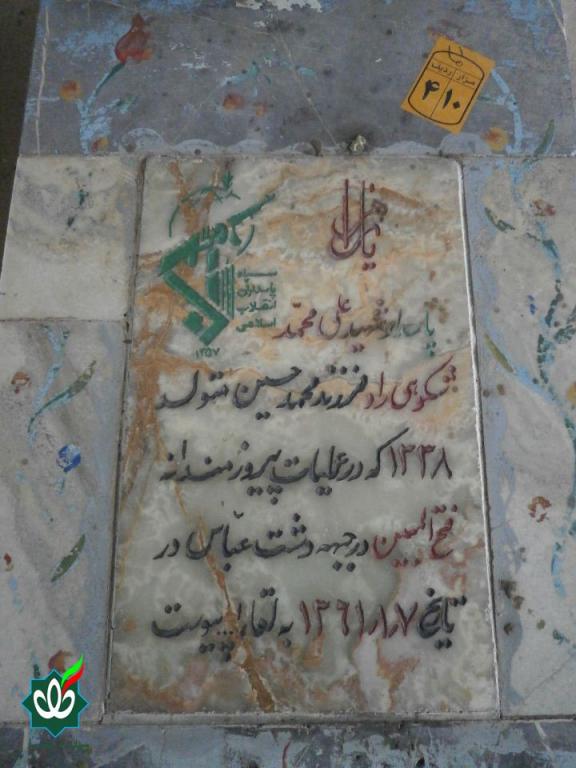 مزار ردیف
۴ ۱۰
یا زهرا
سپاه
پاسداران
انقلاب
اسلامی
۱۳۵۷
پاسدار شهید علی محمد
شکوهی راد فرزند محمد حسین متولد
۱۳۳۸ که در عملیات پیروزمندانه
فتح المبین در جبهه دشت عباس در
تاریخ ۱۳۶۱/۱/۷ به لقاءالله پیوست